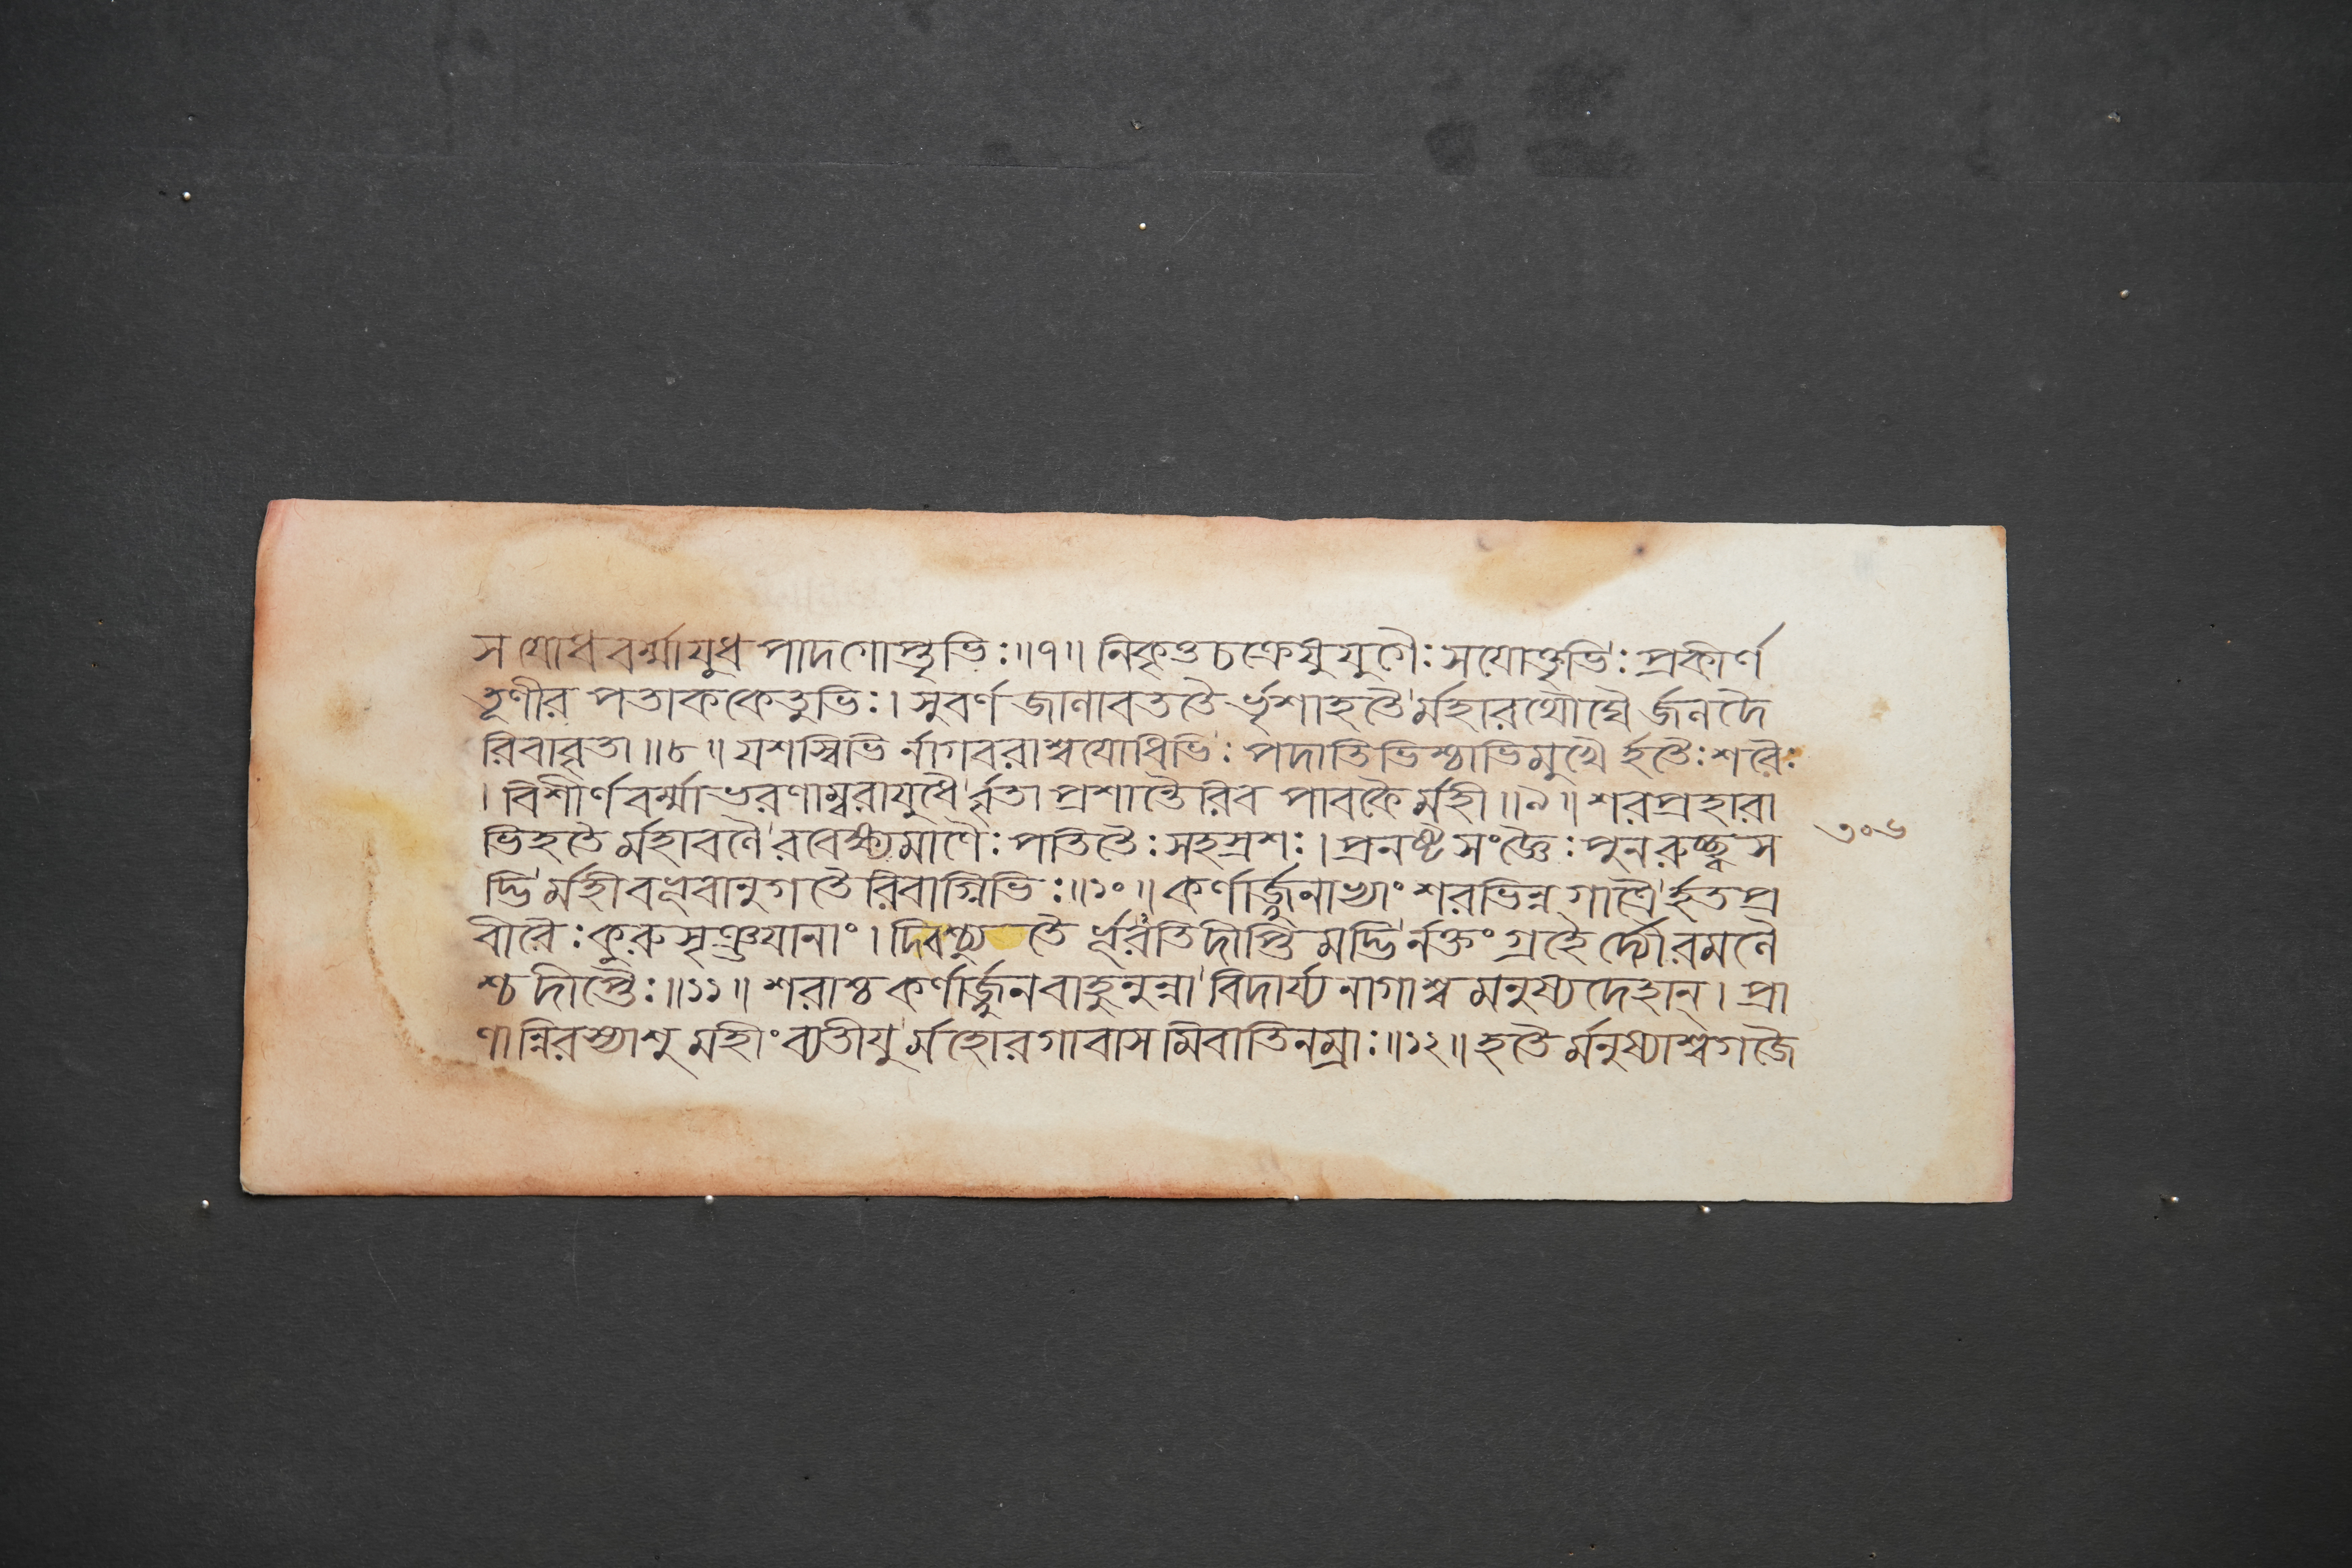 সযোধবর্ম্মাযুধপাদগোপ্তৃভিঃ॥৭॥ নিকৃত্তচক্রেষুযুগৈঃ সযোক্তৃভিঃ প্রকীর্ণ
তূণীর পতাককেতুভিঃ। সুবর্ণ জালাবততৈ র্ভৃশাহতৈর্মহারথৌঘৈ র্জলদৈ
রিবাবৃতা॥৮॥ যশস্বিভি র্নাগবরাশ্বযোধিভিঃ পদাতিভিশ্চাভিমুখৈ র্হতৈঃ শরৈঃ
। বিশীর্ণবর্ম্মাভরণাম্বরাযুধৈর্ব্বৃতা প্রশান্তৈরিব পাবকৈর্মহী॥৯॥ শরপ্রহারা
ভিহতৈ র্মহাবলৈরবেক্ষ্যমাণৈঃ পতিতৈঃ সহস্রশঃ। প্রনষ্টসংজ্ঞৈঃ পুনরুচ্ছ্বস
দ্ভির্মহীবভূবানুগতৈরিবাগ্নিভিঃ॥১০॥ কর্ণার্জ্জুনাভ্যাং শরভিন্নগাত্রৈর্হতপ্র
বীরৈঃ কুরুসৃঞ্জযানাং। দিবশ্চ্যুতৈ র্ভূরতিদীপ্তিমদ্ভির্নক্তং গ্রহৈ র্দ্যৌরমলৈ
শ্চ দীপ্তৈঃ॥১১॥ শরাশ্চ কর্ণার্জ্জুনবাহুনুন্না বিদার্য্য নাগাশ্ব মনুষ্যদেহান্। প্রা
ণান্নিরস্যাশু মহীং ব্যতীযুর্মহোরগাবাসমিবাতিনম্রাঃ॥১২॥ হতৈর্মনুষ্যাশ্বগজৈ
৩০৬